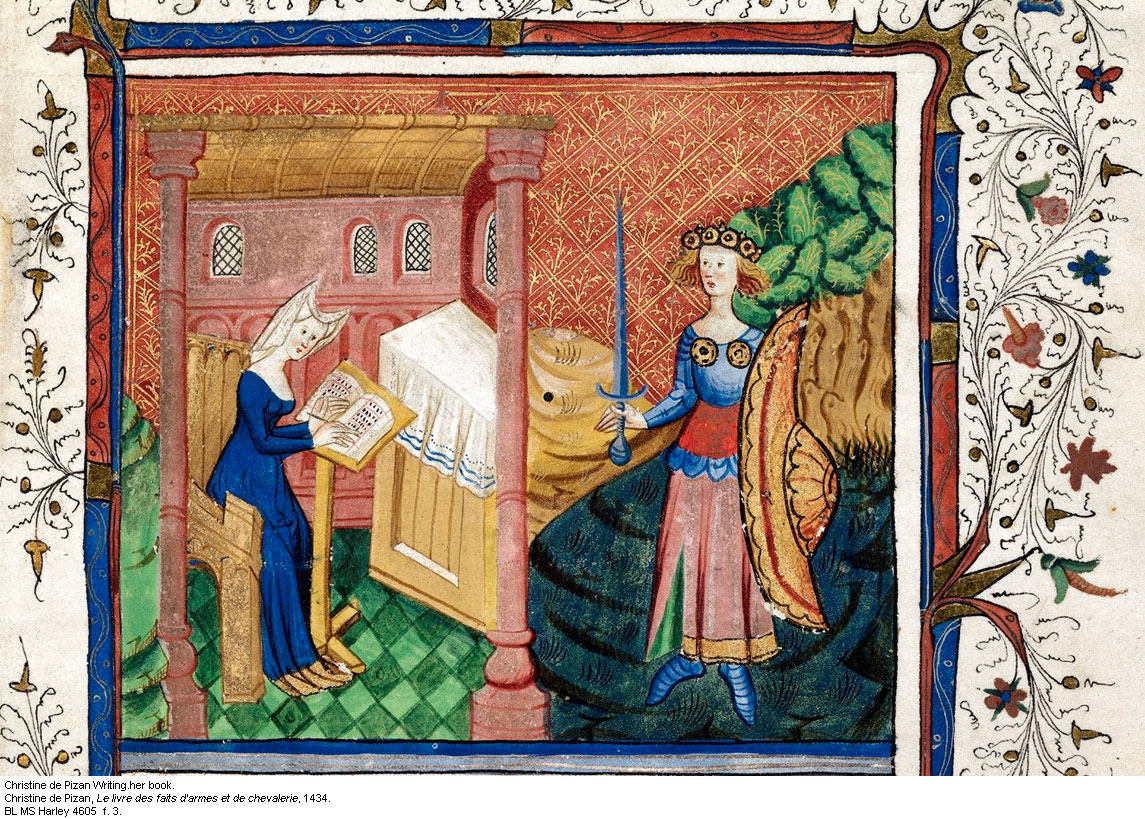 Christine de Pizan Writing.her book.
Christine de Pizan, Le livre des faits d'armes et de chevalerie, 1434.
BL MS Harley 4605  f. 3.